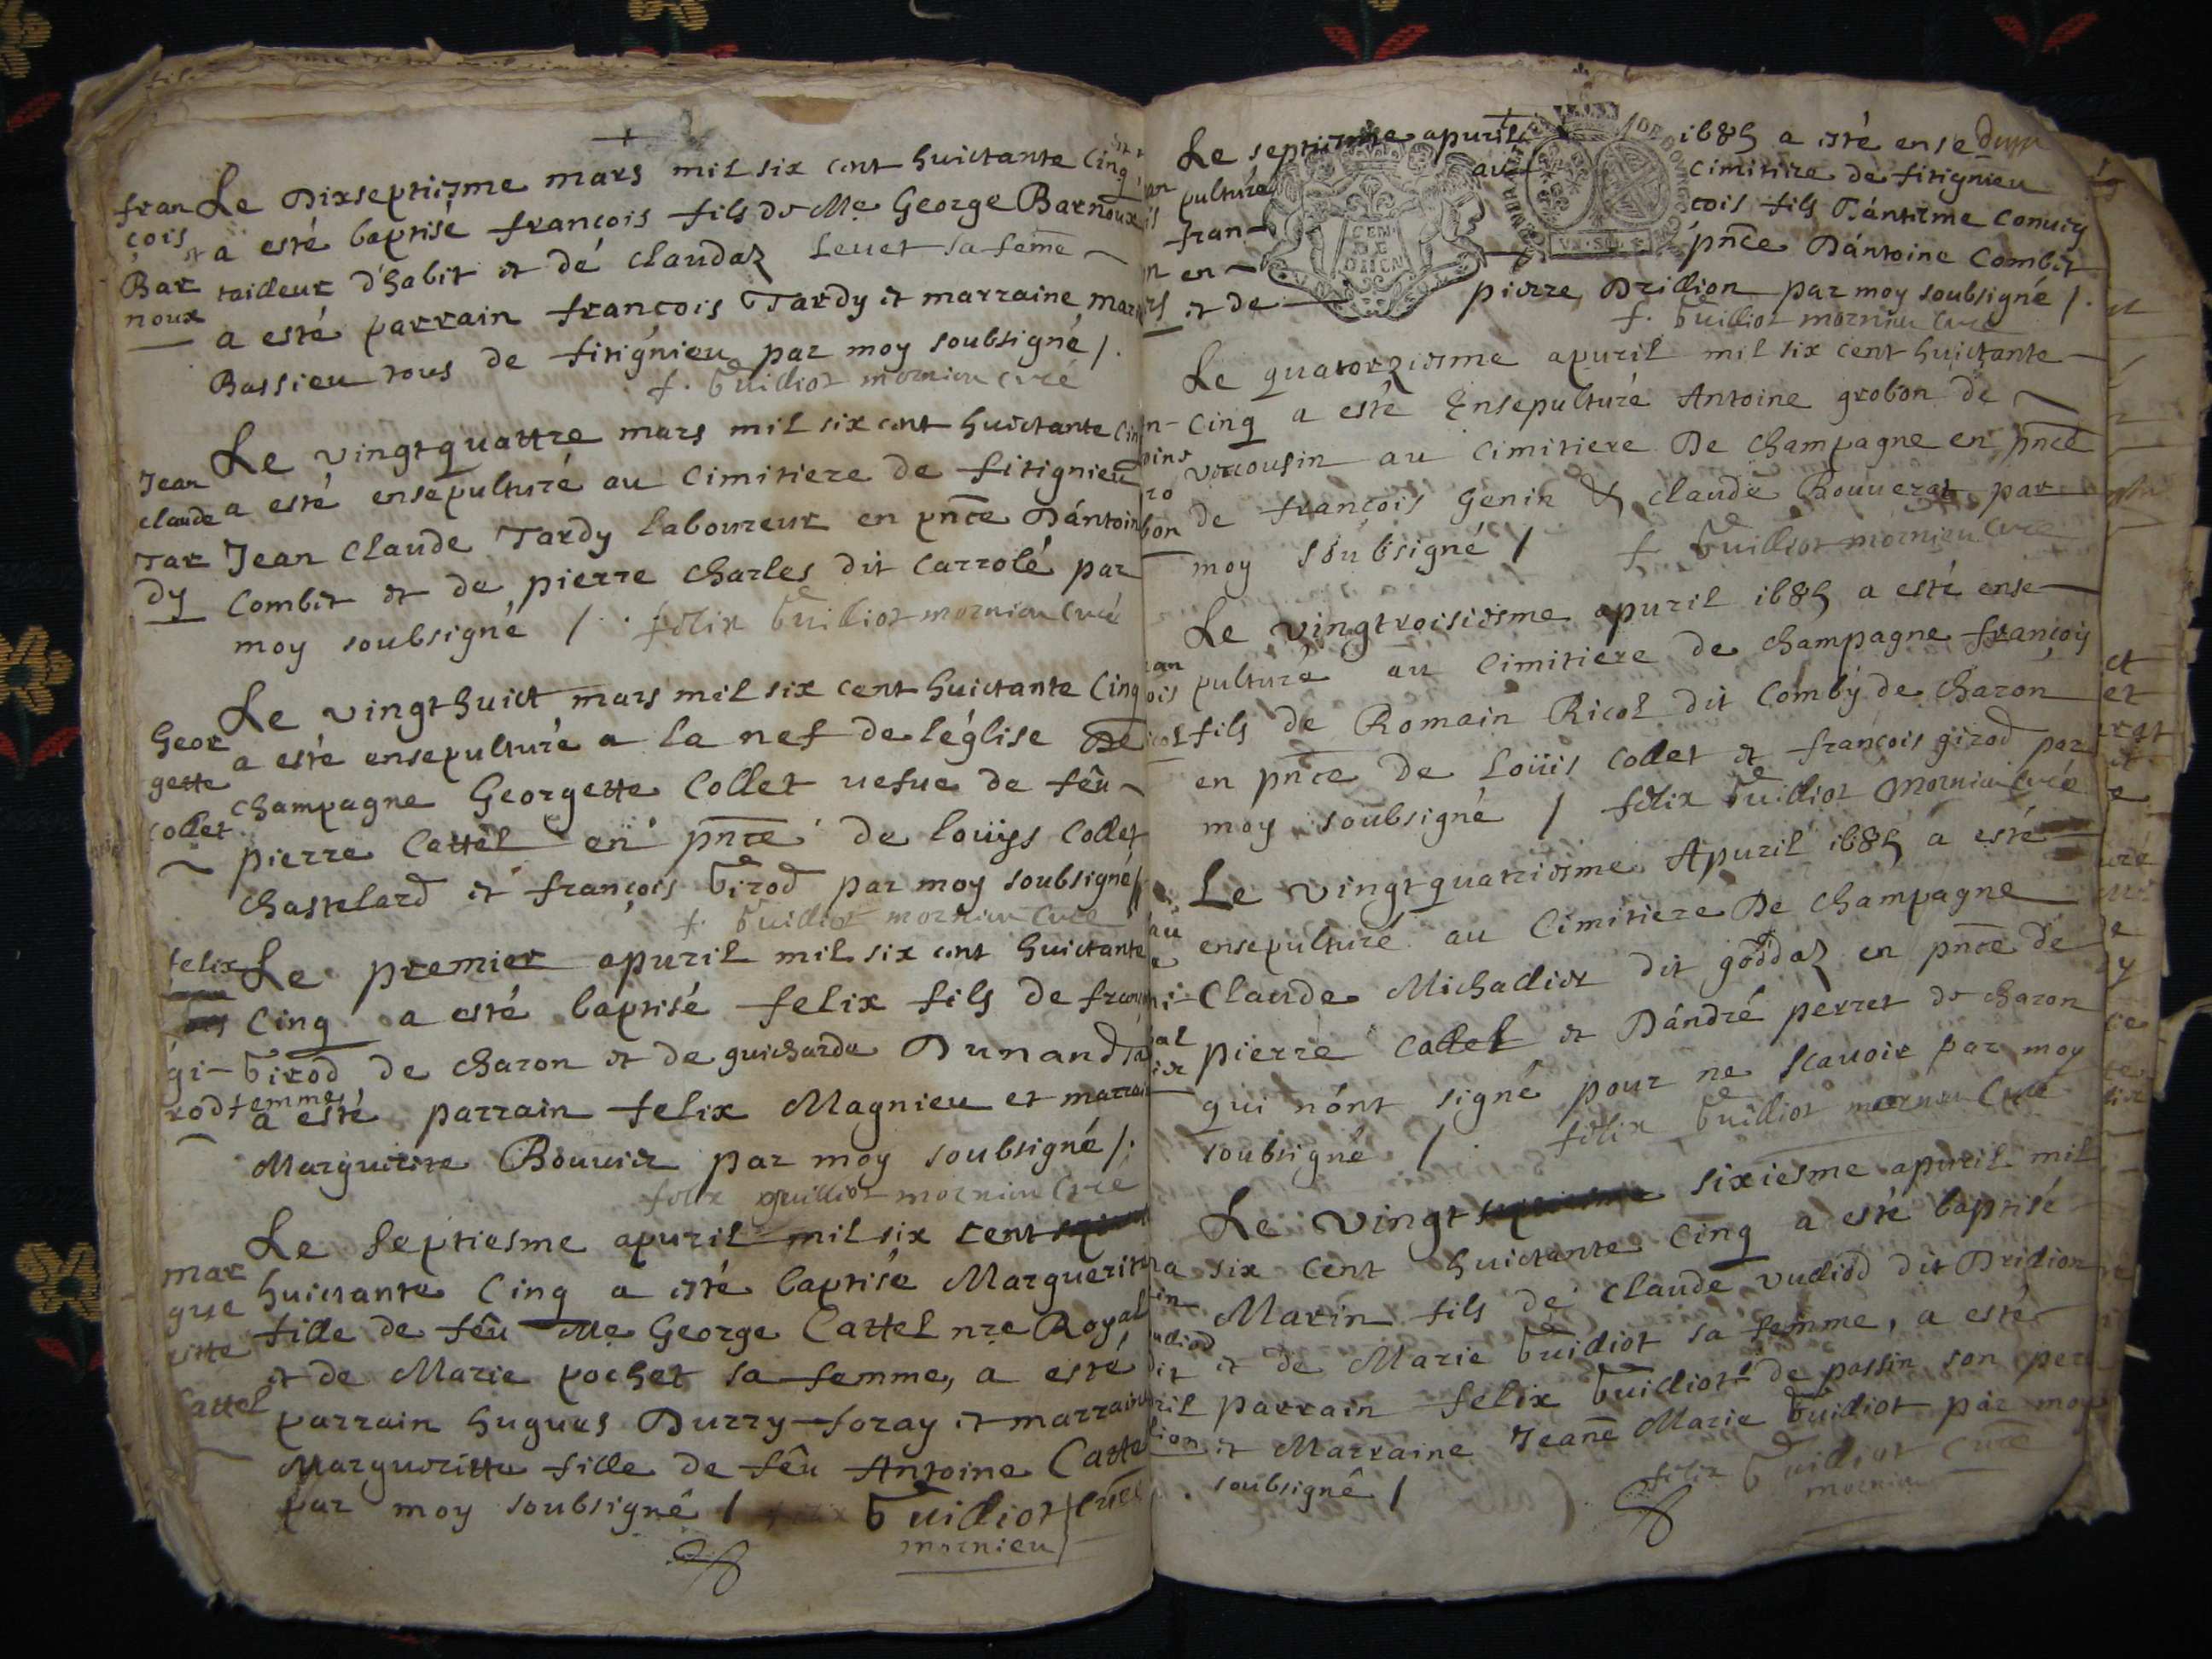 Le Dixseptiesme mars mil six cent huictante Cinq
a esté baptisé françois fils de Me George Barnoux
tailleur d'habit et dé claudaz Leuet sa feme
a esté parrain françois Tardy et marraine marie
Bassieu tous de fitignieu par moy soubsigné /.
f. Guilliot mornieu curé
fran
çois
Bar
noux
Le vingtquattre mars mil six cent huictante Cinq
a esté ensepulturé au Cimitiere de fitignieu
Jean Claude Tardy laboureur en pnce Dántoine
Combet et de pierre Charles dit Carrolé par
moy soubsigné /. felix Guilliot mornieu curé
Jean
claude
Tar
dy
Le vingthuict mars mil six cent huictante Cinq
a esté ensepulturé a la nef de léglise De
champagne Georgette Collet uefue de feû
pierre Cattel en pnce de louys Collet
Chastelard et françois Girod par moy soubsigné /.
f. Guilliot mornieu curé
Geor
gette
collet
Le premier apuril mil six cent huictante
Cinq a esté baptisé felix fils de françois
Girod de charon et de guicharda Dunand sa
femme a esté parrain felix Magnieu et marraine
Marguerite Bouuier par moy soubsigné /.
felix guilliot mornieu curé
felix
gi-
rod
Le Septiesme apuril mil six cent
huictante Cinq a esté baptisée Marguerite
fille de feû Me George Cattel nre Royal
et de Marie pochet sa femme, a esté
parrain hugues Durry-foray et marraine
Marguerittu fille de feû Antoine Cattel
par moy soubsigné / felix Guilliot curé
mornieu
mar
gue
ritte
Cattel
Le septiesme apuril 1685 a esté ense
pulturé au Cimitiere de fitignieu
fran- çois fils Dántelme Conuiy
en pnce Dántoine Combet
et de pierre Drillion par moy soubsigné /.
f. Guilliot mornieu curé
Le quatorziesme apuril mil six cent huictante
Cinq a esté Ensepulturé Antoine grobon de
uircousin au Cimitiere De champagne en pnce
de françois Genin & claude Bouuerat par
moy soubsigné / f. Guilliot mornieu curé
Le vingtroisiesme apuril 1685 a esté ense
pulturé au Cimitiere de champagne françois
fils de Romain Ricol dit Comby de charon
en pnce de Loüis Collet et françois girod par
moy soubsigné / felix Guilliot mornieu curé
Le vingtquatriesme Apuril 1685 a esté
ensepulturé au Cimitiere De champagne
Claude Michallier dit goddaz en pnce de
pierre Cattel et Dándré perret de charon
qui nónt signé pour ne scauoir par moy
soubsigné / felix Guilliot mornieu curé
Le vingt sixiesme apuril mil
six cent huictante Cinq a esté baptisé
Marin fils de claude vulliod dit Drillion
et de Marie Guilliot sa femme, a esté
parrain felix Guilliot de passin son pere
et Marraine Jeane Marie Guilliot par moy
soubsigné / felix Guilliot curé
mornieu